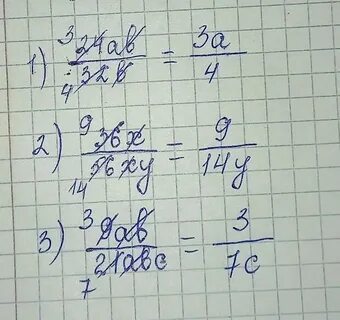 1) 3 24ab / 4 32b = 3a / 4
2) 9 36x / 14 56xy = 9 / 14y
3) 3 9ab / 7 21abc = 3 / 7c